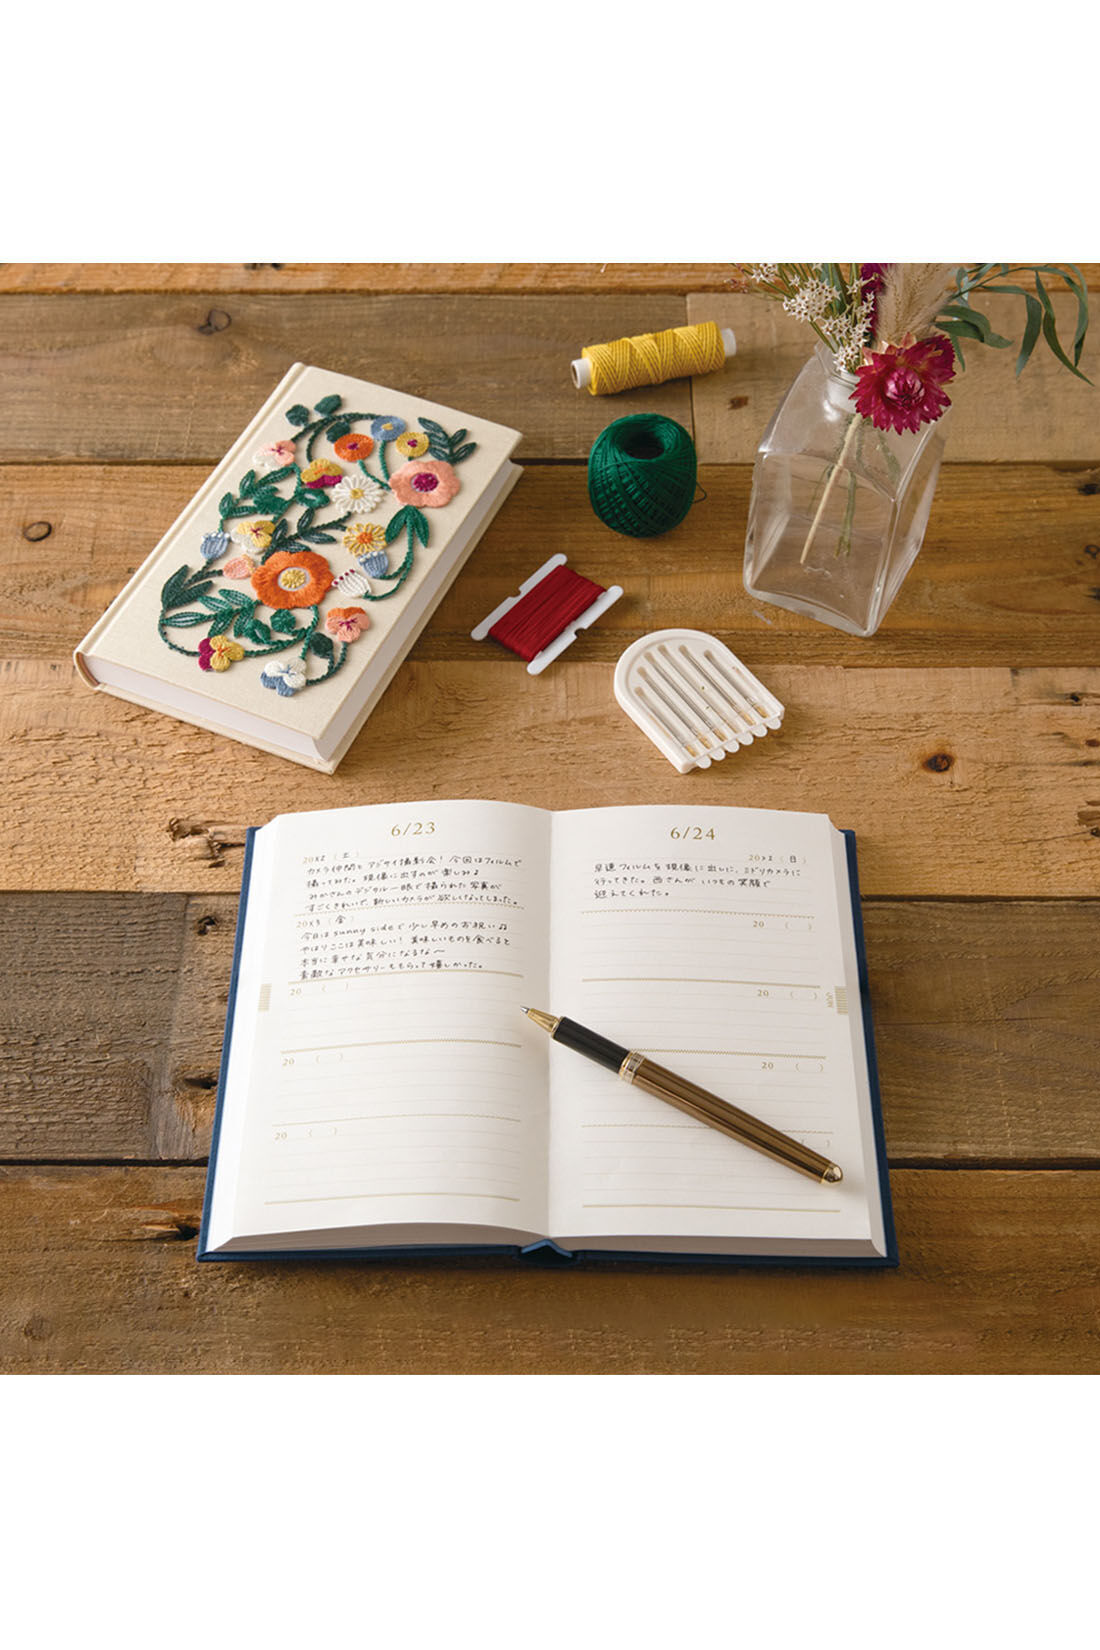 6/23
20X2 (土)
カメラ仲間とアジサイ撮影会! 今回はフィルムで
撮ってみた。現像に出すのが楽しみ♪
みかさんのデジタル一眼で撮られた写真が
すごくきれいで、新しいカメラが欲しくなってしまった。
20X3 (金)
今日は sunny side で少し早めのお祝い♫
やはりここは美味しい! 美味しいものを食べると
本当に幸せな気分になるな〜
素敵なアクセサリーももらって嬉しかった。
20 ( )
20 ( )
20 ( )
6/24
20X2 (日)
早速フィルムを現像に出しに、ミドリカメラに
行ってきた。西さんがいつもの笑顔で
迎えてくれた。
20 ( )
20 ( )
20 ( )
( )